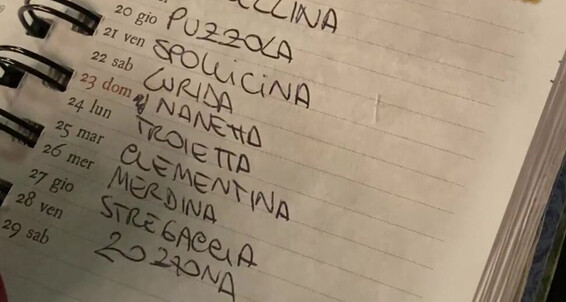 20 gio PUZZOLA
21 ven SPOLLICINA
22 sab LURIDA
23 dom NANETTA
24 lun TROIETTA
25 mar CLEMENTINA
26 mer MERDINA
27 gio STREGACCIA
28 ven ZOZZONA
29 sab